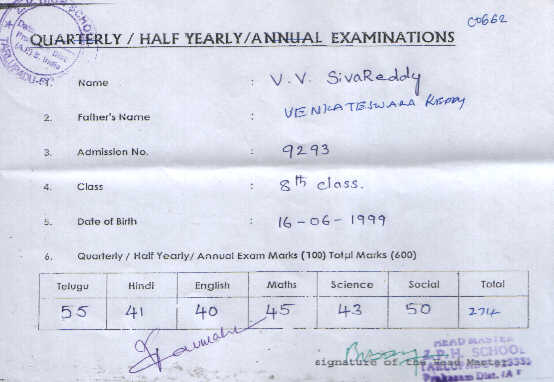 C0662
QUARTERLY / HALF YEARLY/ANNUAL EXAMINATIONS
Name : V.V. SivaReddy
2. Father's Name : VENKATESWARA REDDY
3. Admission No. : 9293
4. Class : 8th class.
5. Date of Birth : 16-06-1999
6. Quarterly / Half Yearly/ Annual Exam Marks (100) Total Marks (600)
Telugu Hindi English Maths Science Social Total
55 41 40 45 43 50 274
HEAD MASTER
signature of the Head Master
Z.P.H. SCHOOL
Prakasam Dist. (A